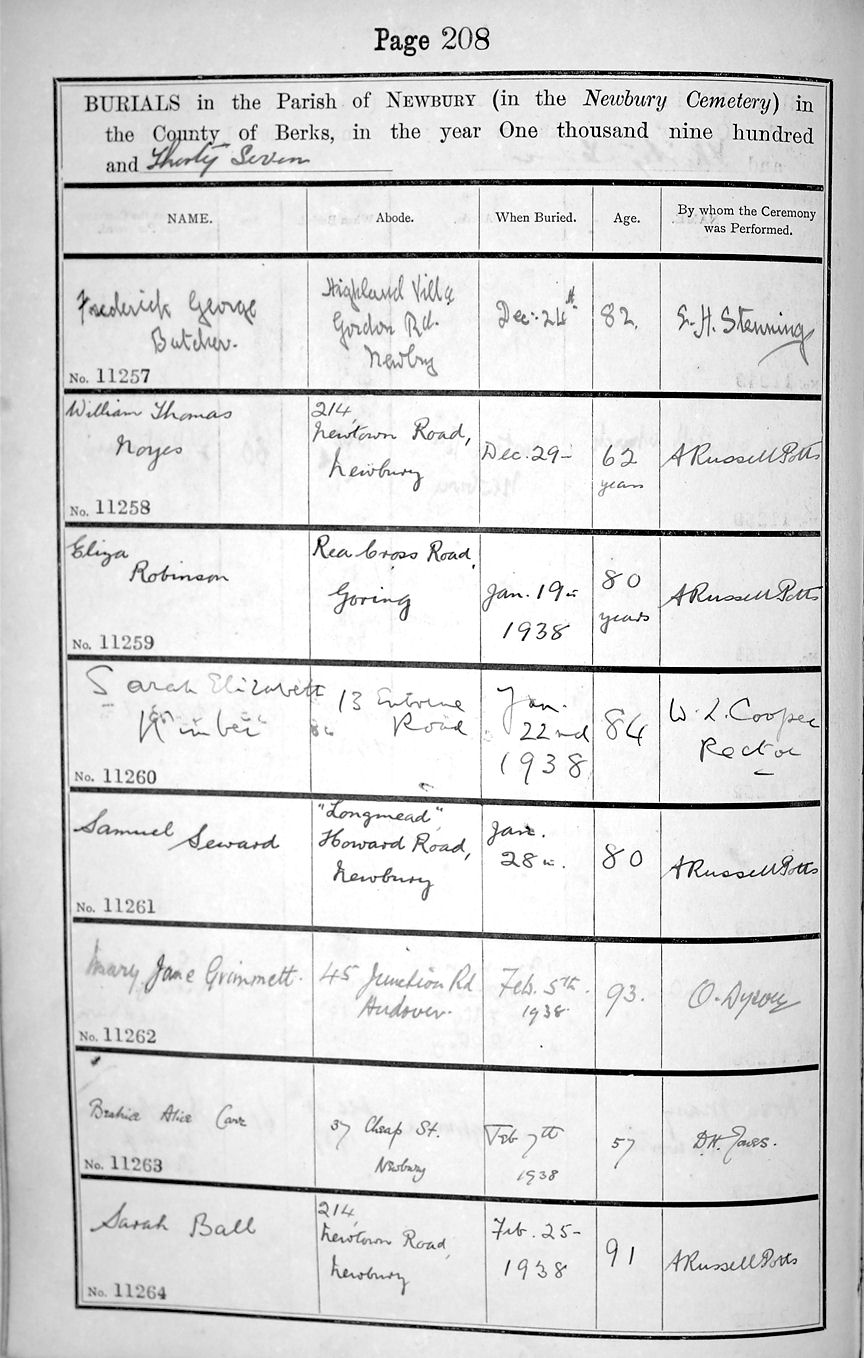 Page 208
BURIALS in the Parish of NEWBURY (in the Newbury Cemetery) in
the County of Berks, in the year One thousand nine hundred
and Thirty Seven
NAME.
Abode.
When Buried.
Age.
By whom the Ceremony
was Performed.
Frederick George
Butcher.
No. 11257
Highland Villa
Gordon Rd.
Newbry
Dec. 24th
82.
E. H. Stenning
William Thomas
Noyes
No. 11258
214,
Newtown Road,
Newbury
Dec. 29-
62
years
A Russell Potts
Eliza
Robinson
No. 11259
Rea Cross Road,
Goring
Jan. 19th
1938
80
years
A Russell Potts
Sarah Elizabeth
Kimber
No. 11260
13
Road
Jan.
22nd
1938
84
W. L. Cooper
Rector
Samuel Seward
No. 11261
"Longmead",
Howard Road,
Newbury
Jan.
28th.
80
A Russell Potts
Mary Jane Grimmett.
No. 11262
45 Junction Rd
Andover.
Feb. 5th.
1938
93.
O.
Beatrice Alice Carr
No. 11263
37 Cheap St.
Newbury
Feb 7th
1938
57
D.H. Jones.
Sarah Ball
No. 11264
214,
Newtown Road,
Newbury
Feb. 25-
1938
91
A Russell Potts